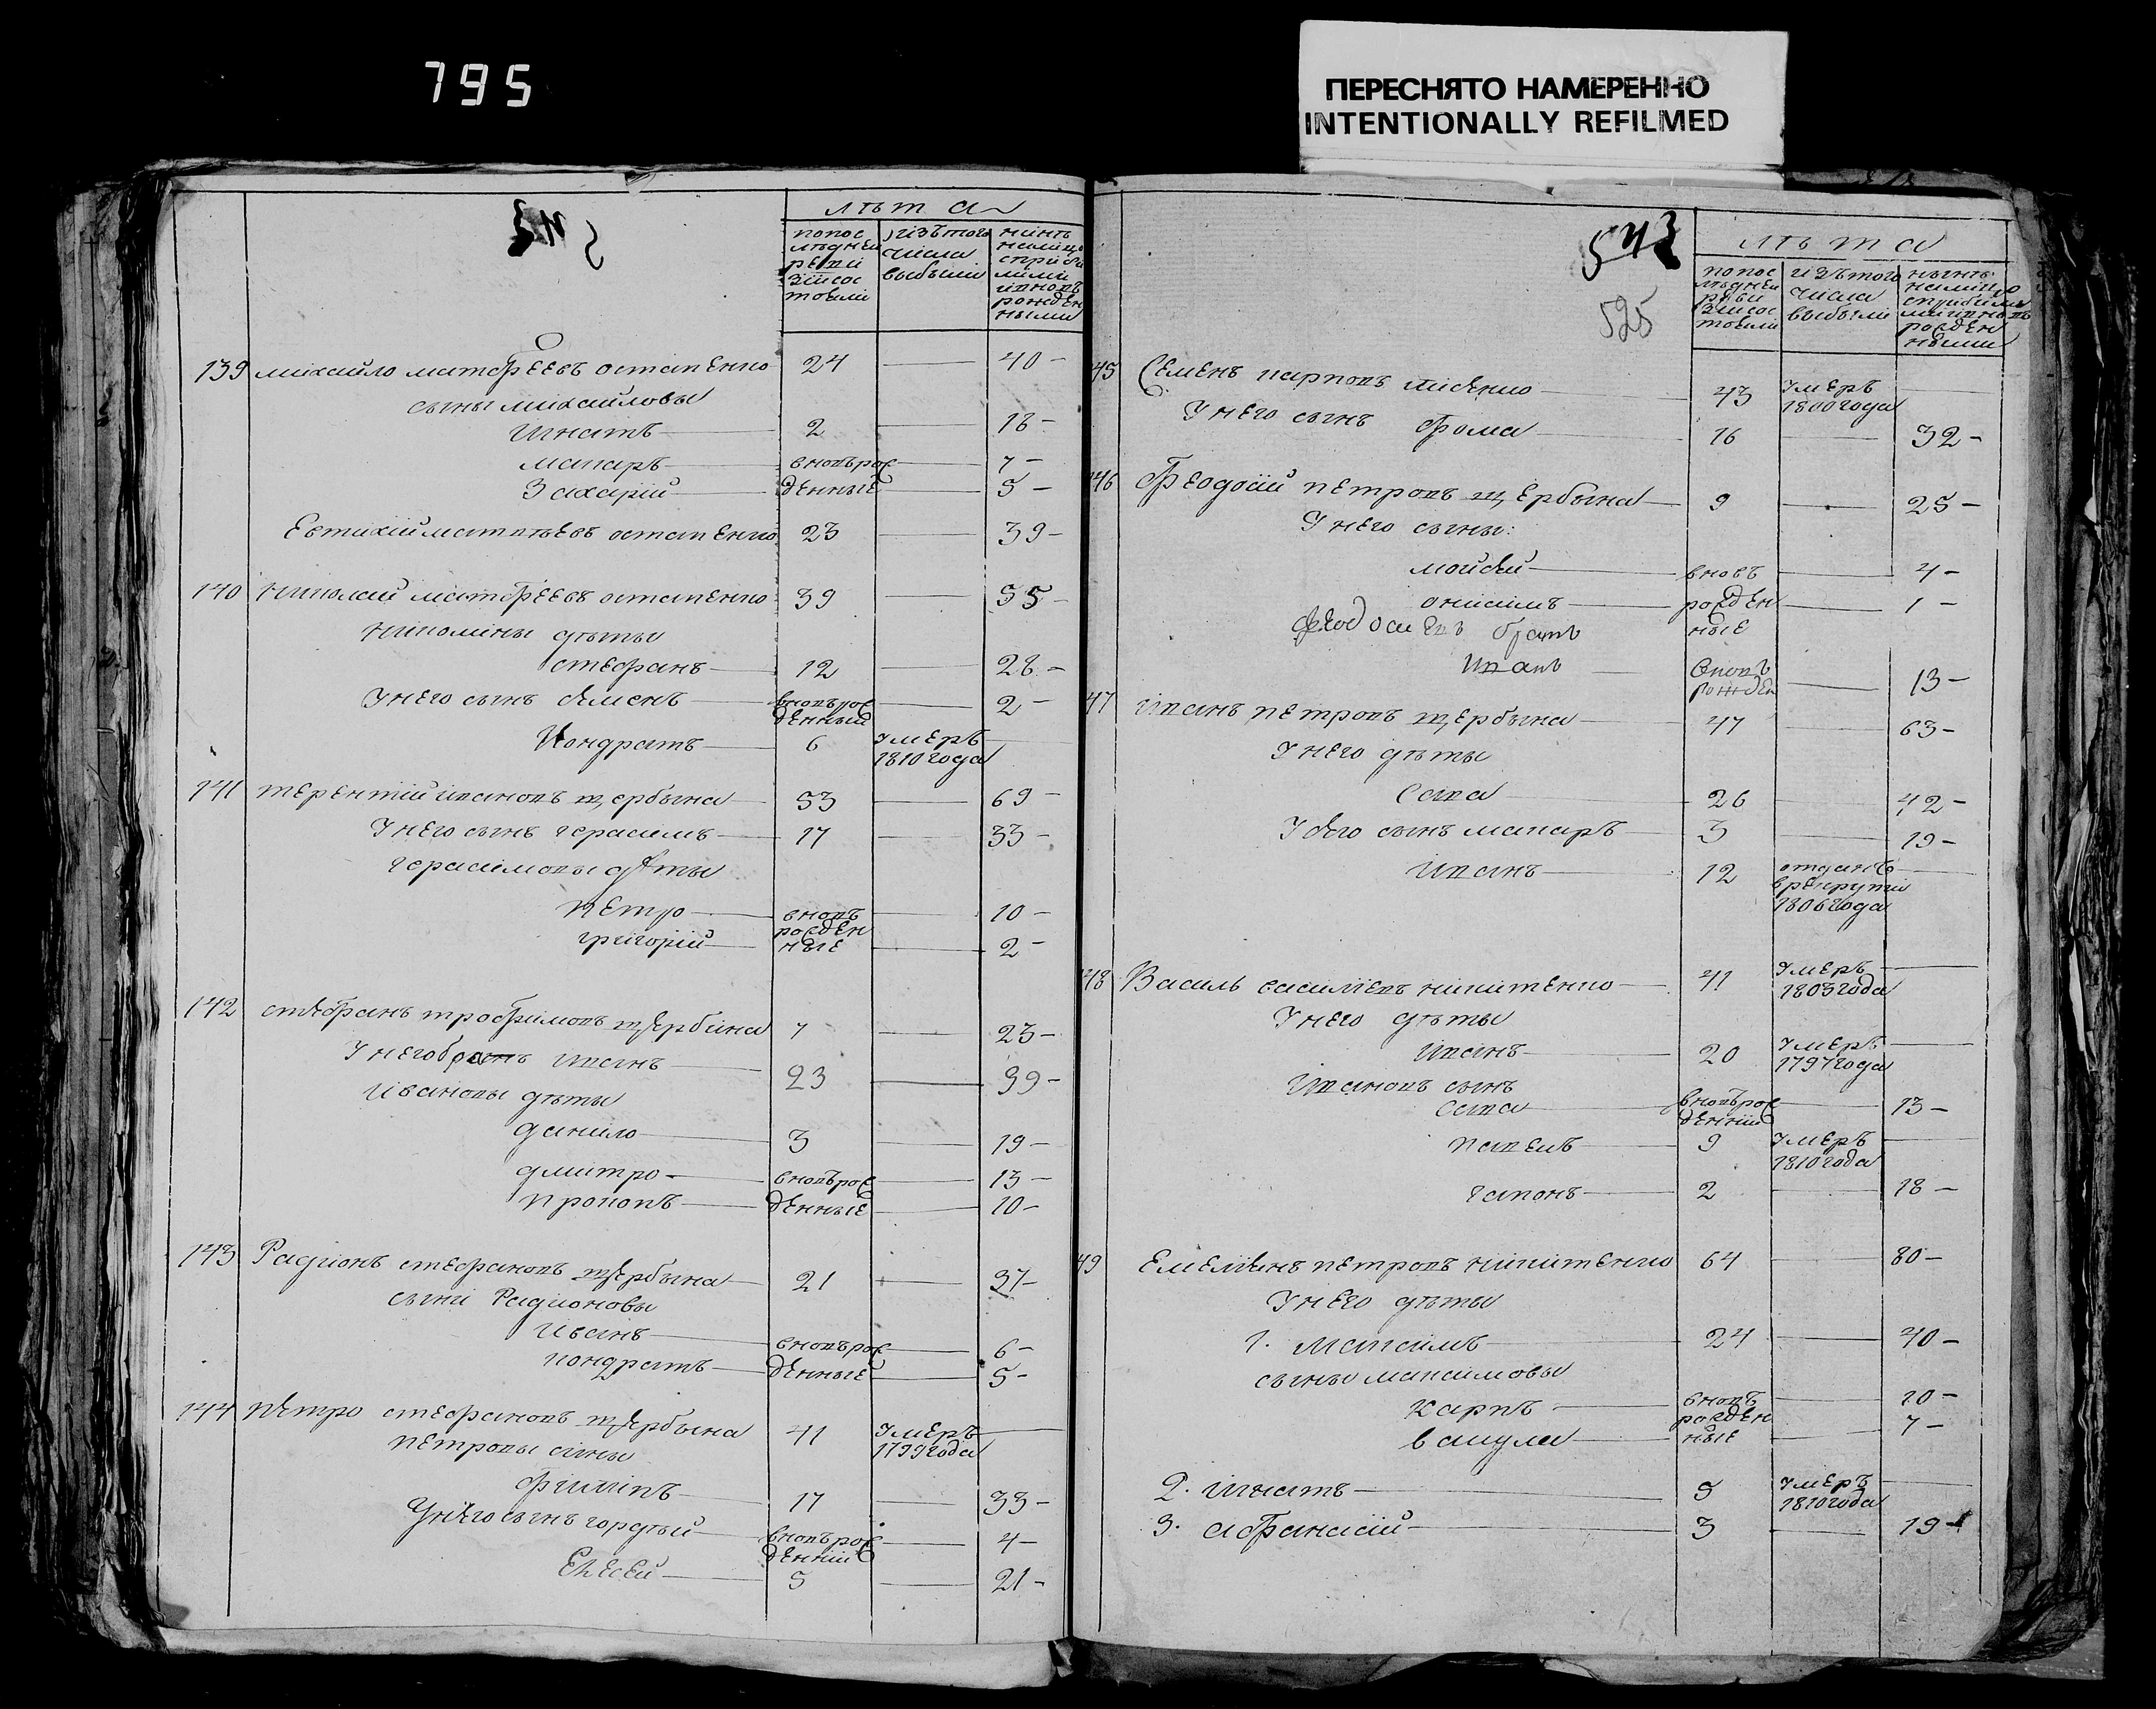 795
ПЕРЕСНЯТО НАМЕРЕННО
INTENTIONALLY REFILMED
лѣта
попос лѣдней ревизіи состояли
изъ того числа выбыли
нинѣ налицо
139 михайло матфеевъ остапенко 24 40
сыны михайловы
Игнатъ 2 18
макаръ вновърож 7
Захарій денные 5
Евтихій матвѣевъ остапенко 23 39
140 Николай матфеевъ остапенко 39 55
николины дѣты
стефанъ 12 28
У него сынъ семенъ вновърожденный 2
Кондратъ 6 умеръ 1810 года
141 терентій ивановъ щербына 53 69
У него сынъ герасимъ 17 33
герасимовы дѣты
петро вновъ 10
рожден
григорій ные 2
142 стефанъ трофимовъ щербина 7 23
У него братъ иванъ 23 39
Ивановы дѣты
данило 3 19
дмитро вновърож 13
прокопъ денные 10
143 Радионъ стефановъ щербына 21 37
сыни Радионовы
иванъ вновърож 6
кондратъ денные 5
144 петро стефановъ щербына 41 умеръ 1799 года
петровы сины
филипъ 17 33
У него сынъ гордѣй вновърожденній 4
Елесей 5 21
543
525
лѣта
попос лѣдней ревизіи состояли
изъ того числа выбыли
нынѣ налицо
45 Семенъ карповъ лисенко 43 умеръ 1800 года
У него сынъ Фома 16 32
46 Феодосій петровъ щербына 9 25
У него сыны:
мойсей вновъ 4
онисимъ рожден 1
Феодосиевъ братъ ные
Иванъ вновъ рожден 13
47 иванъ петровъ щербына 47 63
У него дѣты
Сава 26 42
У его сынъ макаръ 3 19
Иванъ 12 отданъ в рекруты 1806 года
48 Василь василіевъ никитенко 41 умеръ 1803 года
У него дѣты
иванъ 20 умеръ 1797 года
Ивановъ сынъ
сава вновърожденній 13
павелъ 9 умеръ 1810 года
гапонъ 2 18
49 Емеліянъ петровъ никитенко 64 80
У него дѣты
1. Максимъ 24 40
сыны максимовы
Карпъ вновъ 10
рожден
вакула ные 7
2. игнатъ 5 умеръ 1810 года
3. афанасій 3 19